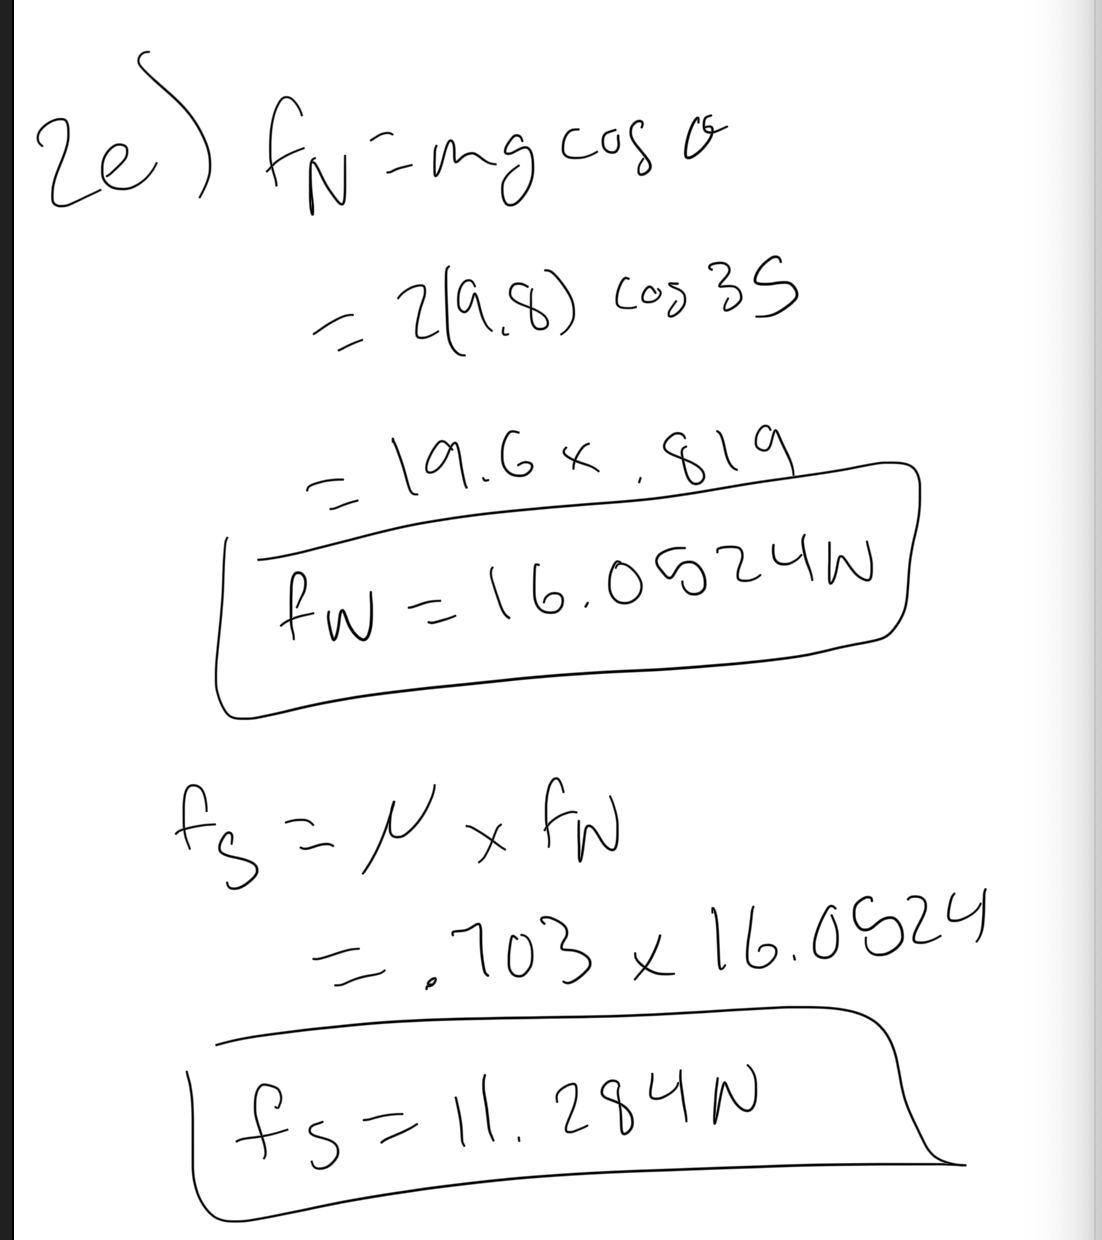 2e) fN = mg cos θ
= 2(9.8) cos 35
= 19.6 x .819
fN = 16.0524N
fs = μ x fN
= .703 x 16.0524
fs = 11.284N